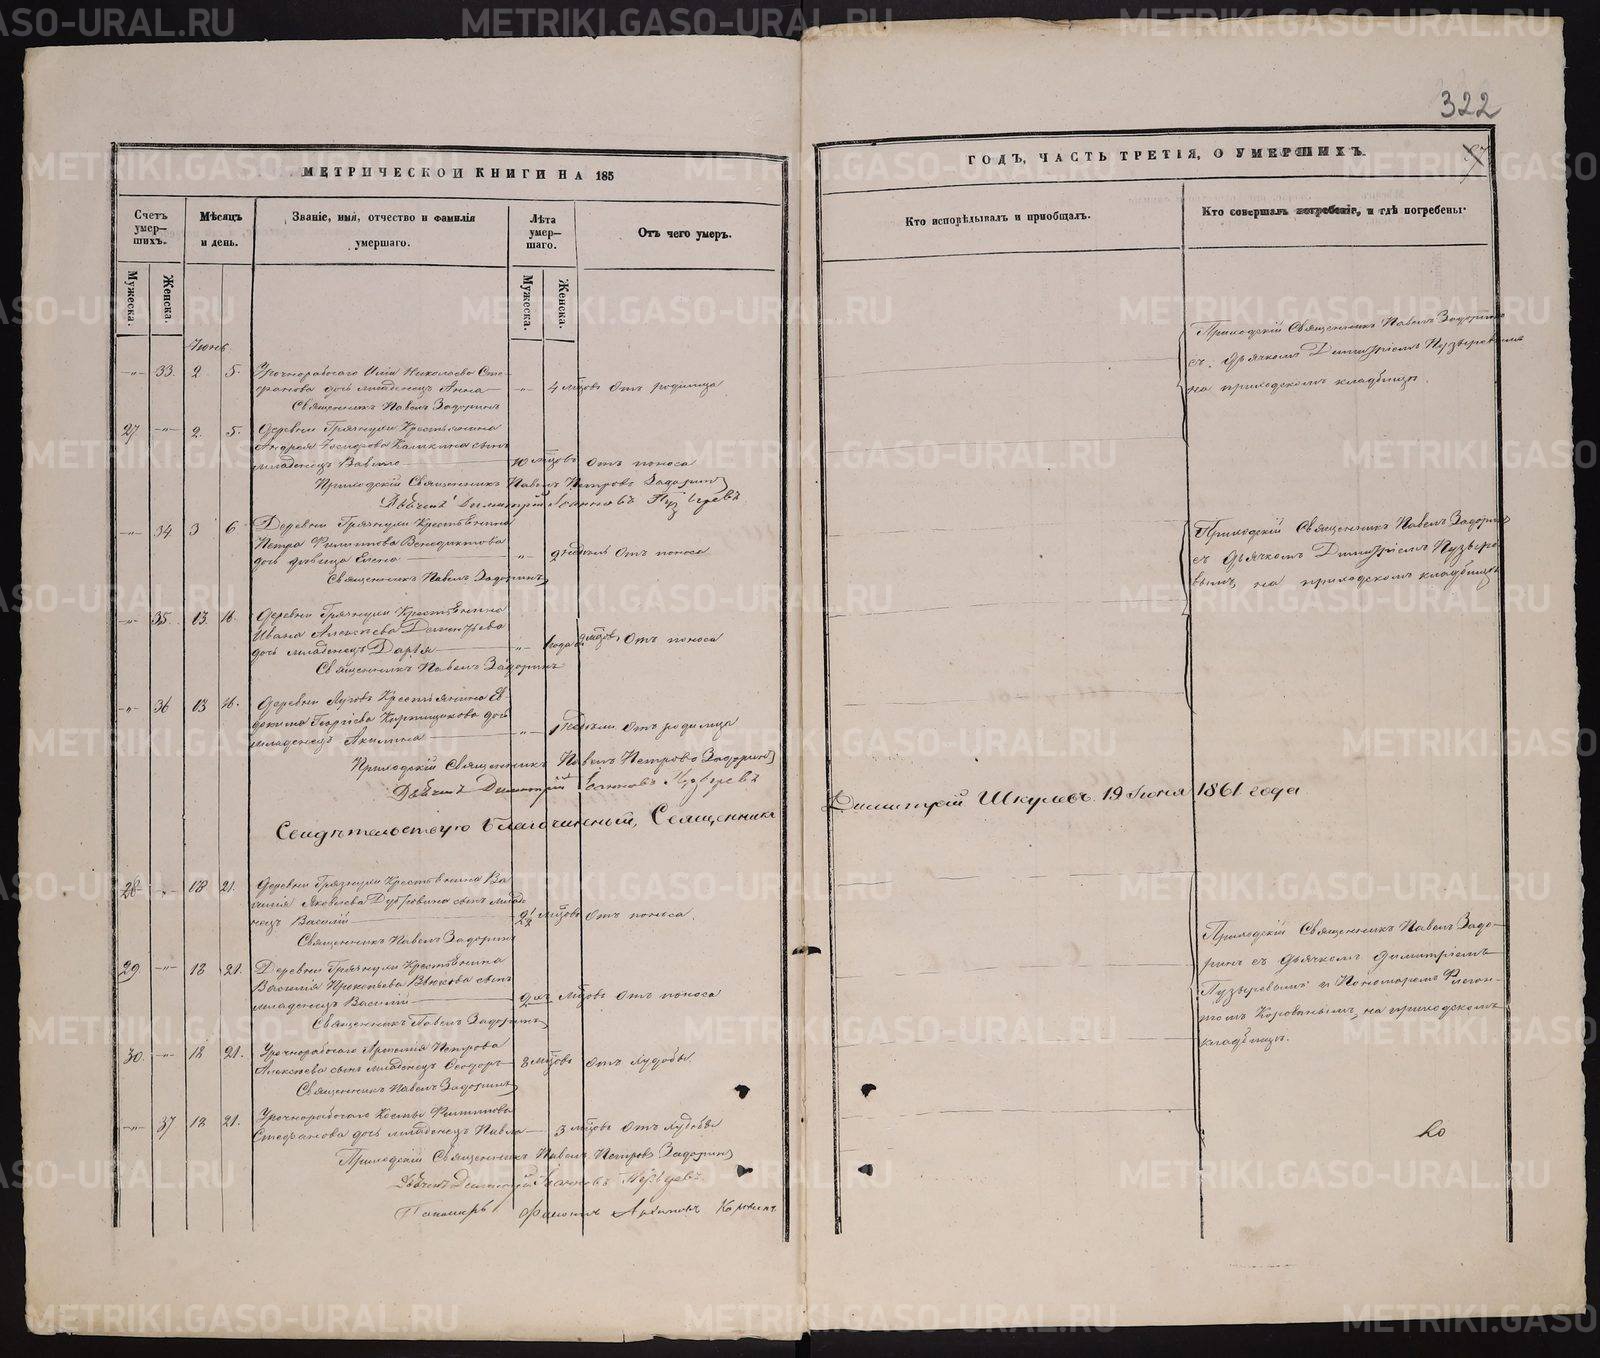 322
МЕТРИЧЕСКОЙ КНИГИ НА 185
ГОДЪ, ЧАСТЬ ТРЕТІЯ, О УМЕРШИХЪ.
Счетъ умер-шихъ.
Мѣсяцъ и день.
Званіе, имя, отчество и фамилія умершаго.
Лѣта умер-шаго.
Отъ чего умеръ.
Кто исповѣдывалъ и пріобщалъ.
Кто совершалъ погребеніе, и гдѣ погребены.
Мужеска.
Женска.
Мужеска.
Женска.
Іюнь
-"- 33. 2 5. Урочнорабочаго Иліи Николаева Сте-
фанова дочь младенецъ Анна -"- 4 мцовъ Отъ родимца
Священникъ Павелъ Задоринъ
Приходскій Священникъ Павелъ Задоринъ
съ дьячкомъ Димитріемъ Пузыревымъ
на приходскомъ кладбищѣ.
27 -"- 2. 5. Деревни Грязнухи Крестьянина
Андрея Калинина сынъ
младенецъ Вавило 10 мцовъ Отъ поноса
Приходскій Священникъ Павелъ Петровъ Задоринъ
Дьячекъ Димитрій Іоанновъ Пузыревъ
-"- 34 3 6 Деревни Грязнухи Крестьянина
Петра Филиппова Венедиктова
дочь дѣвица Елена -"- Отъ поноса
Священникъ Павелъ Задоринъ
Приходскій Священникъ Павелъ Задоринъ
съ дьячкомъ Димитріемъ Пузыре-
вымъ на приходскомъ кладбищѣ
-"- 35. 13. 16. Деревни Грязнухи Крестьянина
Ивана Алексѣева Дементьева
дочь младенецъ Дарія -"- 1 года мцов Отъ поноса
Священникъ Павелъ Задоринъ
-"- 36 13 16. Деревни Крестьянина Ев-
докима Георгіева Кирпищикова дочь
младенецъ Акилина -"- недѣли Отъ родимца
Приходскій Священникъ Павелъ Петровъ Задоринъ
Дьячекъ Димитрій Іоанновъ Пузыревъ
Свидѣтельствую Благочинный, Священникъ
Димитрій Шкулевъ. 19 Іюня 1861 года
28 -"- 18 21. Деревни Грязнухи Крестьянина Ва-
силія Яковлева Дубровина сынъ младе-
нецъ Василій 2½ мцовъ Отъ поноса.
Священникъ Павелъ Задоринъ
29 -"- 18 21. Деревни Грязнухи Крестьянина
Василія Прокопьева сынъ
младенецъ Василій мцовъ Отъ поноса
Священникъ Павелъ Задоринъ
Приходскій Священникъ Павелъ Задо-
ринъ съ дьячкомъ Димитріемъ
Пузыревымъ и Пономаремъ Флегон-
томъ Коровинымъ, на приходскомъ
кладбищѣ.
30. -"- 18 21. Урочнорабочаго Артемія Петрова
Алексѣева сынъ младенецъ Ѳеодоръ 8 мцовъ Отъ худобы
Священникъ Павелъ Задоринъ
-"- 37 18 21. Урочнорабочаго Филиппова
Стефанова дочь младенецъ Павла 3 мцовъ Отъ худобы
Приходскій Священникъ Павелъ Петровъ Задоринъ
Дьячекъ Димитрій Іоанновъ Пузыревъ
Пономарь Коровинъ
METRIKI.GASO-URAL.RU